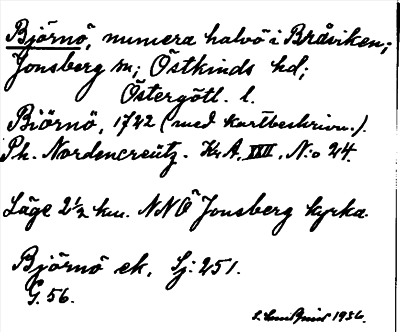 Björnö, numera halvö i Bråviken;
Jonsberg sn; Östkinds hd;
Östergötl. l.
Biörnö, 1742 (med kartbeskrivn.).
Ph. Nordencreütz. Kr.A. XXII, N:o 24.
Läge 2½ km. NNO Jonsberg kyrka.
Björnö ek. Sj: 251.
G. 56.
1936.